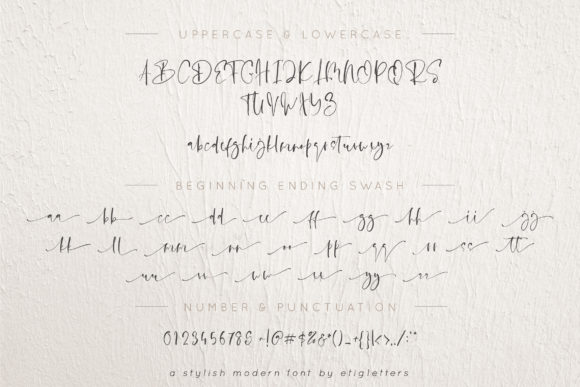 UPPERCASE & LOWERCASE
ABCDEFGHIJKLMNOPQRS
TUVWXYZ
abcdefghijklmnopqrstuvwxyz
BEGINNING ENDING SWASH
aa bb cc dd ee ff gg hh ii jj
kk ll mm nn oo pp qq rr ss tt
uu vv ww xx yy zz
NUMBER & PUNCTUATION
0123456789 ~!@#$%&*()_+{}|<>,./:"*
a stylish modern font by etigletters